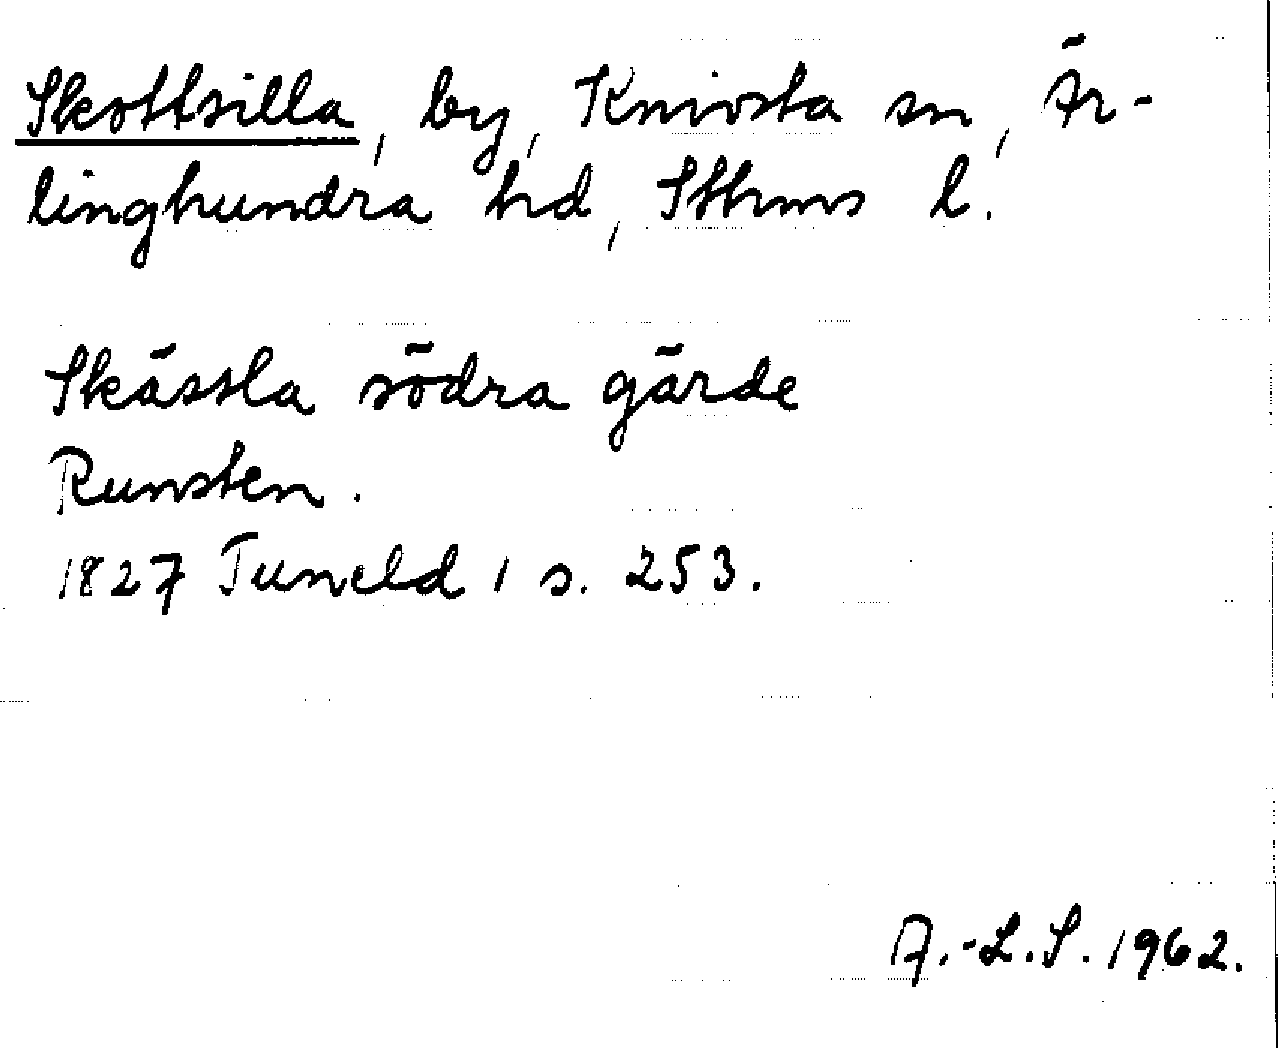 Skottsilla, by, Knivsta sn, Är-
linghundra hd, Sthms l.
Skässla södra gärde
Runsten.
1827 Tuneld 1 s. 253.
A.-L.S. 1962.